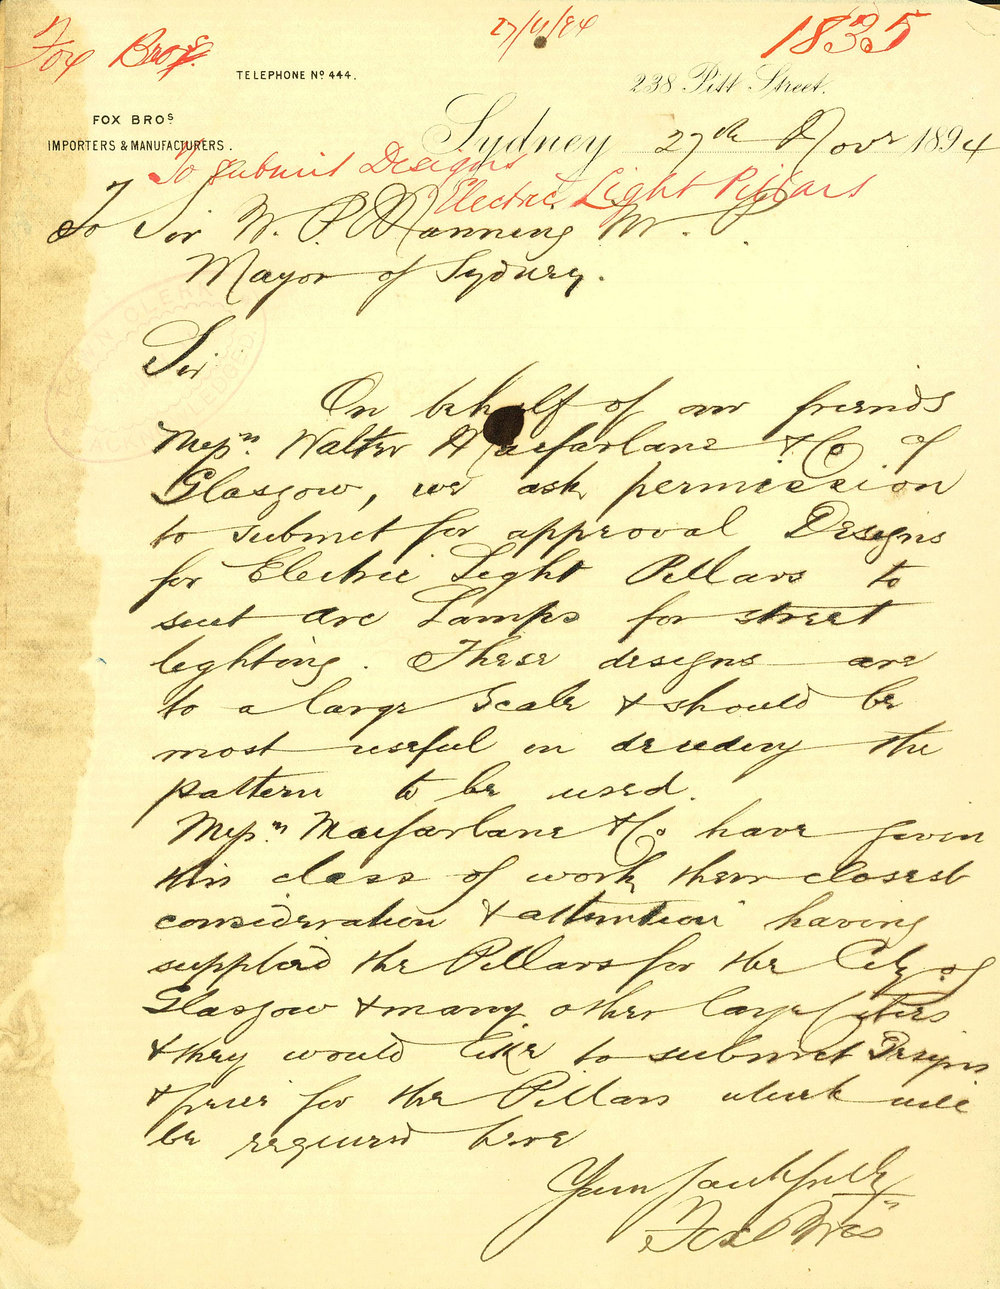 Fox Bros.
27/11/94
1835
TELEPHONE No 444.
238 Pitt Street.
FOX BROs
IMPORTERS & MANUFACTURERS.
Sydney 27th Novr 1894
To Submit Designs
Electric Light Pillars
To Sir W. P. Manning Kt.
Mayor of Sydney.
Sir
On behalf of our friends
Messrs. Walter Macfarlane & Co of
Glasgow, we ask permission
to submit for approval Designs
for Electric Light Pillars to
suit Arc Lamps for street
lighting. These designs are
to a large Scale & should be
most useful in deciding the
pattern to be used.
Messrs Macfarlane & Co have given
this class of work their closest
consideration & attention having
supplied the Pillars for the City of
Glasgow & many other large Cities
& they would like to submit Designs
& price for the Pillars which will
be required here
Yours faithfully
Fox Bros
TOWN CLERK
ACKNOWLEDGED